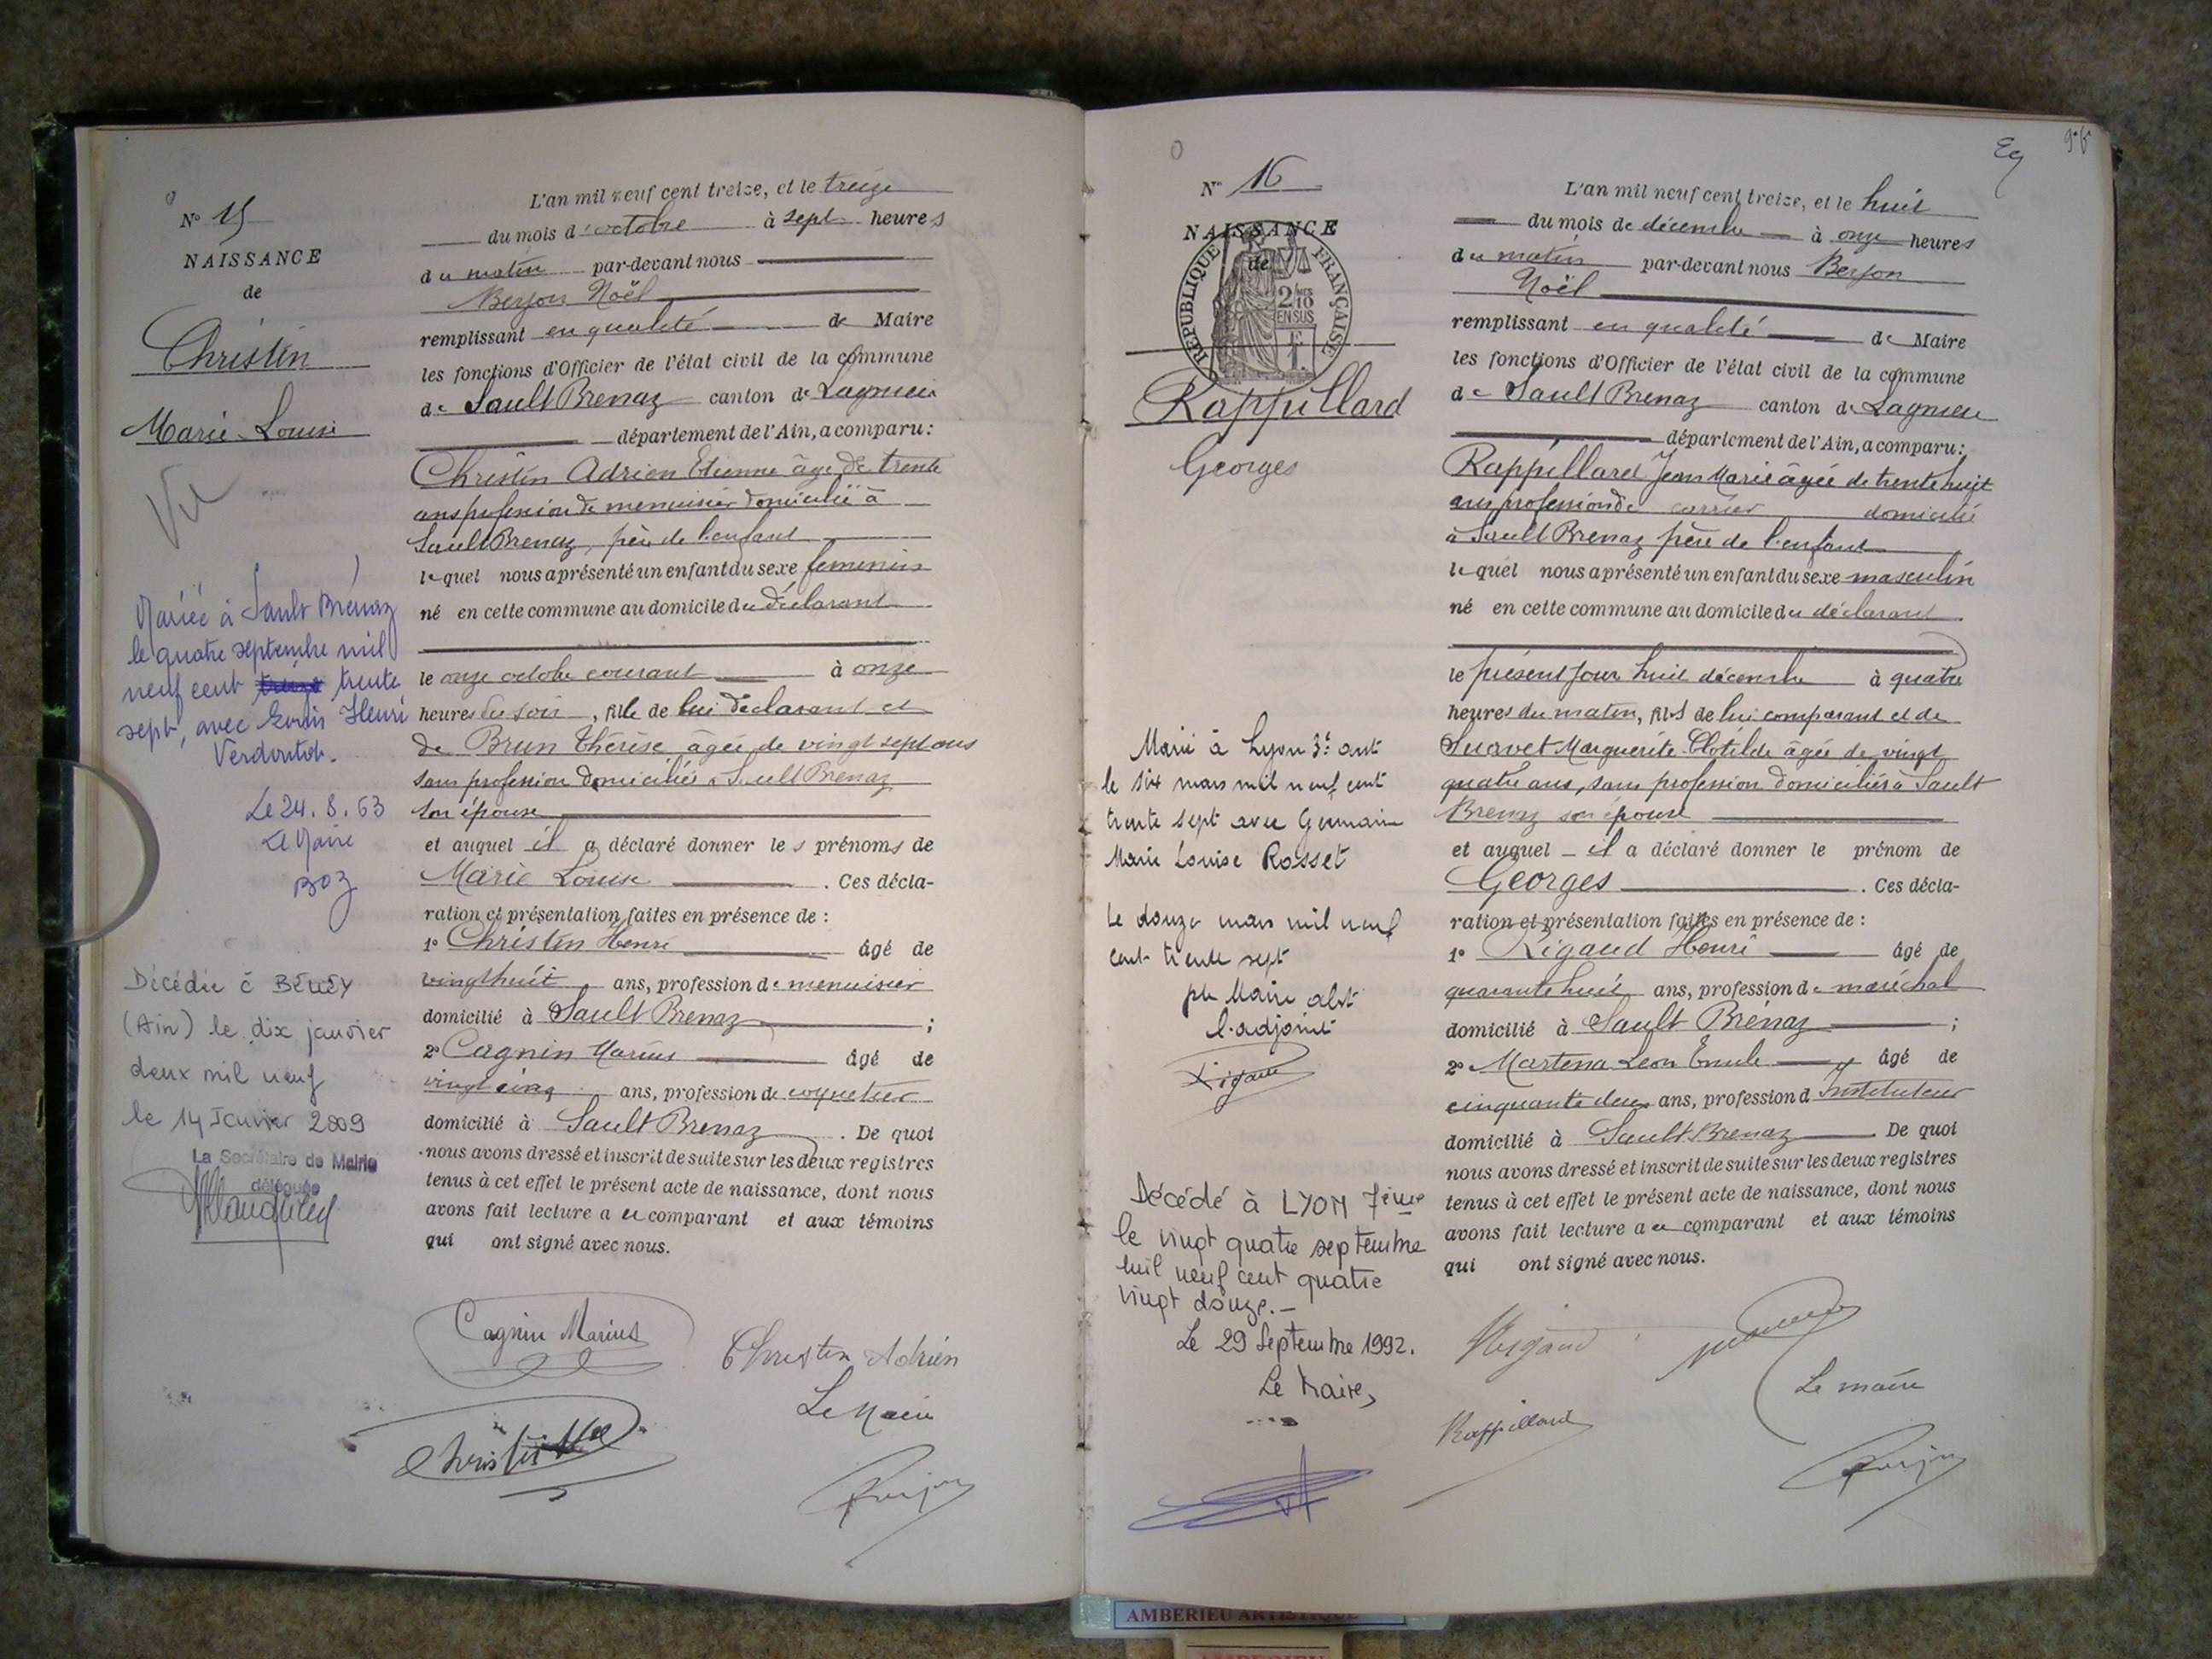 N° 15
NAISSANCE
de
Christin
Marie Louise
Vu
Mariée à Sault Brénaz
le quatre septembre mil
neuf cent trente
sept, avec Louis Henri
Le 24.8.63
Le Maire
Boz
Décédée à
(Ain) le dix janvier
deux mil neuf
le 14 Janvier 2009
La Secrétaire de Mairie
déléguée
L'an mil neuf cent treize, et le treize
du mois d'octobre à sept heures
du matin par-devant nous
Berjon Noël
remplissant en qualité de Maire
les fonctions d'Officier de l'état civil de la commune
de Sault Brenaz canton de Lagnieu
département de l'Ain, a comparu :
Christin Adrien Etienne âgé de trente
ans profession de menuisier domicilié à
Sault Brenaz, père de l'enfant
lequel nous a présenté un enfant du sexe feminin
né en cette commune au domicile du déclarant
le onze octobre courant à onze
heures du soir, fille de lui déclarant et
de Brun Thérèse âgée de vingt sept ans
sans profession domiciliée à Sault Brenaz
son épouse
et auquel il a déclaré donner les prénoms de
Marie Louise . Ces décla-
ration et présentation faites en présence de :
1° Christin Henri âgé de
vingt huit ans, profession de menuisier
domicilié à Sault Brenaz ;
2° Cagnin Marius âgé de
vingt cinq ans, profession de coquetier
domicilié à Sault Brenaz . De quoi
nous avons dressé et inscrit de suite sur les deux registres
tenus à cet effet le présent acte de naissance, dont nous
avons fait lecture au comparant et aux témoins
qui ont signé avec nous.
Cagnin Marius
Christin Adrien
Le Maire
Berjon
95
N° 16
NAISSANCE
de
REPUBLIQUE FRANÇAISE
2/10
EN SUS
Rappillard
Georges
Marié à Lyon 3e art
le six mars mil neuf cent
trente sept avec Germaine
Marie Louise Rosset
Le douze mars mil neuf
cent trente sept
pr Maire abst
l'adjoint
Rigaud
Décédé à LYON 7ème
le vingt quatre septembre
mil neuf cent quatre
vingt douze.-
Le 29 Septembre 1992.
Le Maire,
L'an mil neuf cent treize, et le huit
du mois de décembre à onze heures
du matin par-devant nous Berjon
Noël
remplissant en qualité de Maire
les fonctions d'Officier de l'état civil de la commune
de Sault Brenaz canton de Lagnieu
département de l'Ain, a comparu :
Rappillard Jean Marie âgée de trente huit
ans profession de carrier domicilié
à Sault Brenaz père de l'enfant
lequel nous a présenté un enfant du sexe masculin
né en cette commune au domicile du déclarant
le présent jour huit décembre à quatre
heures du matin, fils de lui comparant et de
Suavet Marguerite Clotilde âgée de vingt
quatre ans, sans profession domiciliée à Sault
Brenaz son épouse
et auquel il a déclaré donner le prénom de
Georges . Ces décla-
ration et présentation faites en présence de :
1° Rigaud Henri âgé de
quarante huit ans, profession de maréchal
domicilié à Sault Brénaz ;
2° Martena Leon Emile âgé de
cinquante deux ans, profession d'Instituteur
domicilié à Sault Brenaz De quoi
nous avons dressé et inscrit de suite sur les deux registres
tenus à cet effet le présent acte de naissance, dont nous
avons fait lecture au comparant et aux témoins
qui ont signé avec nous.
HRigaud
Le maire
Rappillard
Berjon
AMBERIEU ARTISTIQUE
AMBERIEU